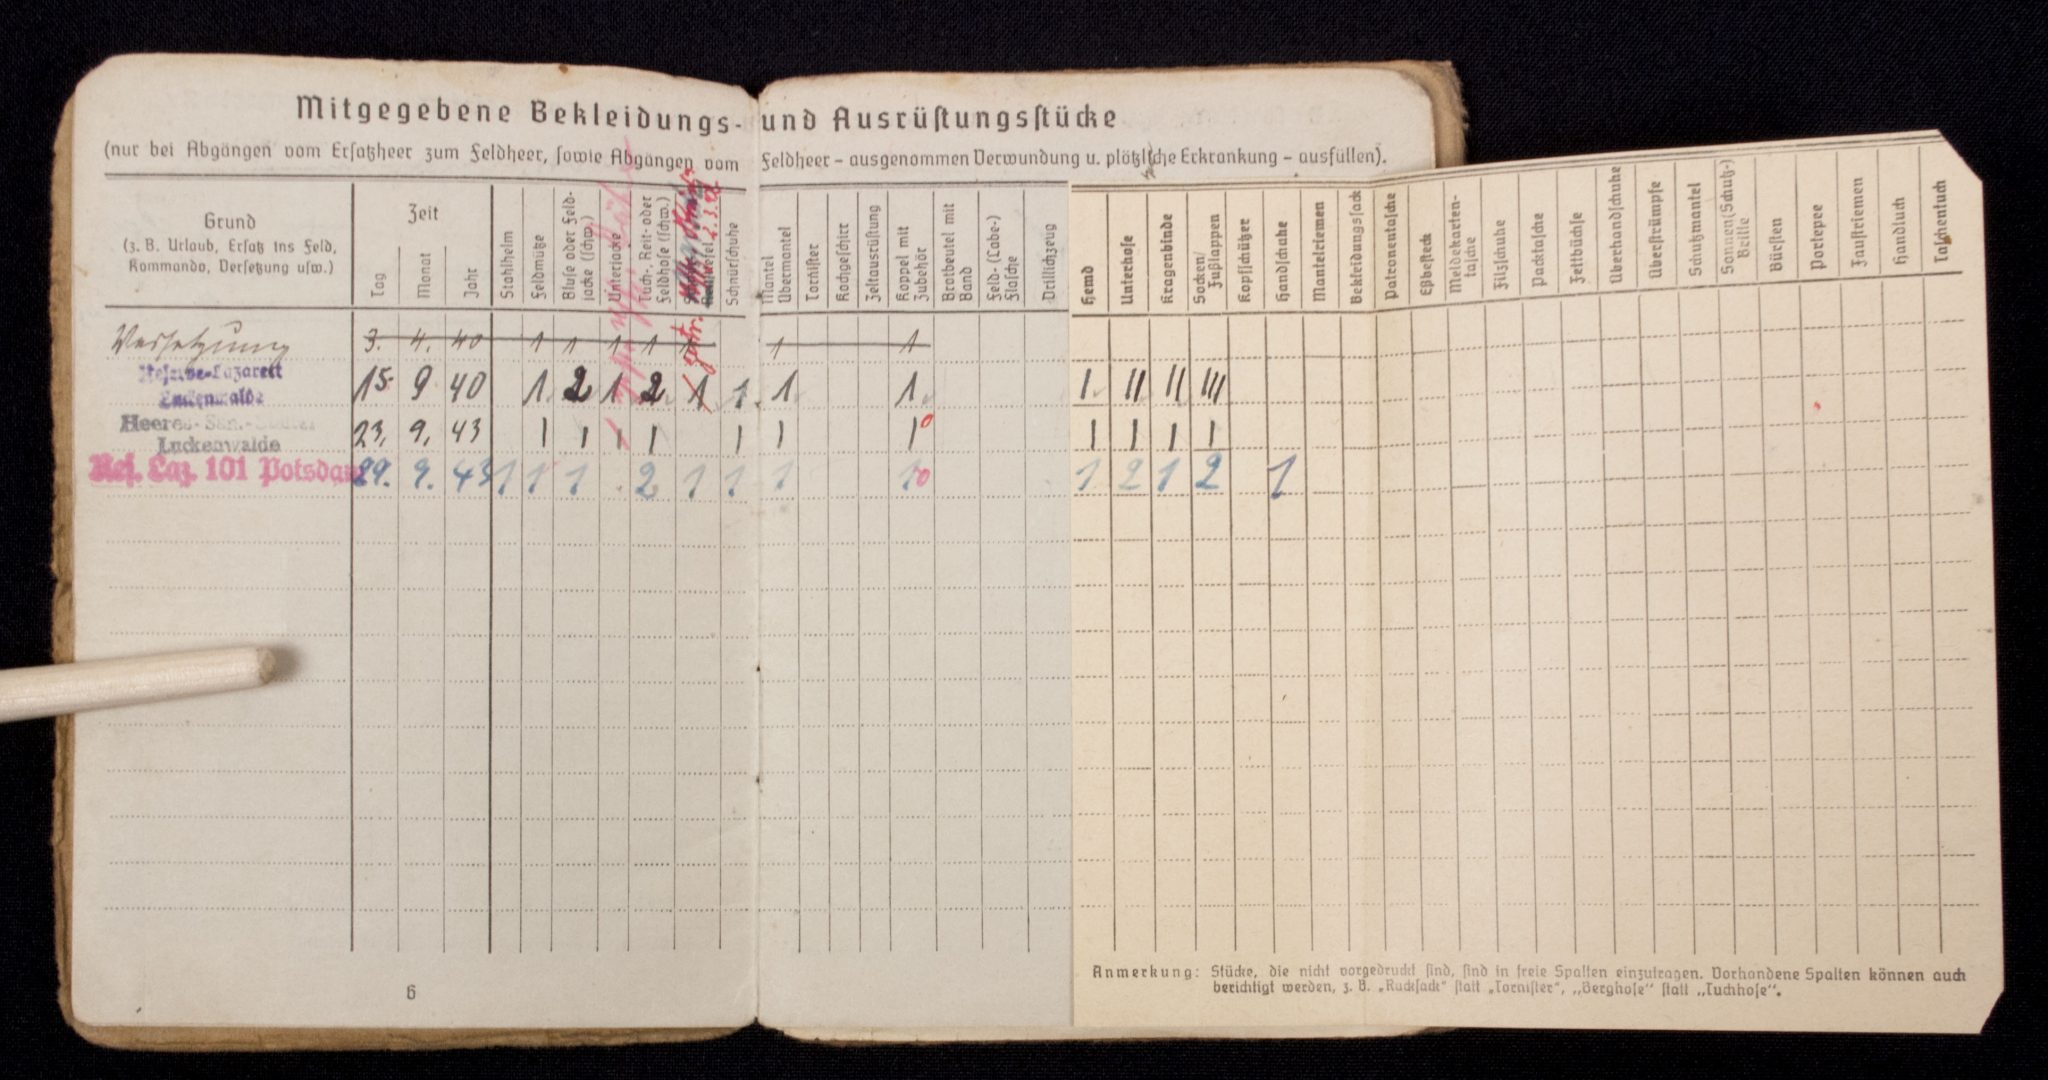 Mitgegebene Bekleidungs- und Ausrüstungsstücke
(nur bei Abgängen vom Ersatzheer zum Feldheer, sowie Abgängen vom Feldheer – ausgenommen Verwundung u. plötzliche Erkrankung – ausfüllen).
Grund
(z. B. Urlaub, Ersatz ins Feld,
Kommando, Versetzung usw.)
Zeit
Tag
Monat
Jahr
Stahlhelm
Feldmütze
Bluse oder Feld-
jacke (schw.)
Unterjacke
Tuch-, Reit- oder
Feldhose (schw.)
2.3.42
Schnürschuhe
Mantel
Übermantel
Tornister
Kochgeschirr
Zeltausrüstung
Koppel mit
Zubehör
Brotbeutel mit
Band
Feld- (Labe-)
Flasche
Drillichzeug
Hemd
Unterhose
Kragenbinde
Socken/
Fußlappen
Kopfschützer
Handschuhe
Mantelriemen
Bekleidungssack
Patronentasche
Eßbesteck
Meldekarten-
tasche
Filzschuhe
Packtasche
Fettbüchse
Überhandschuhe
Überstrümpfe
Schutzmantel
Sonnen(Schutz-)
Brille
Bürsten
Portepee
Faustriemen
Handtuch
Taschentuch
Versetzung 3. 4. 40 1 1 1 1 1 1 1
Reserve-Lazarett
Luckenwalde
15. 9 40 1 2 1 2 1 1. 1 1. I II II III
Heeres-San.-
Luckenwalde
23. 9. 43 1 1 1 1 1 1 1 0 1 1 1 1
Res. Laz. 101 Potsdam 29. 9. 43 1 1 1 2 1 1 1 1 0 1 2 1 2 1
6
Anmerkung: Stücke, die nicht vorgedruckt sind, sind in freie Spalten einzutragen. Vorhandene Spalten können auch
berichtigt werden, z. B. „Rucksack" statt „Tornister", „Berghose" statt „Tuchhose".